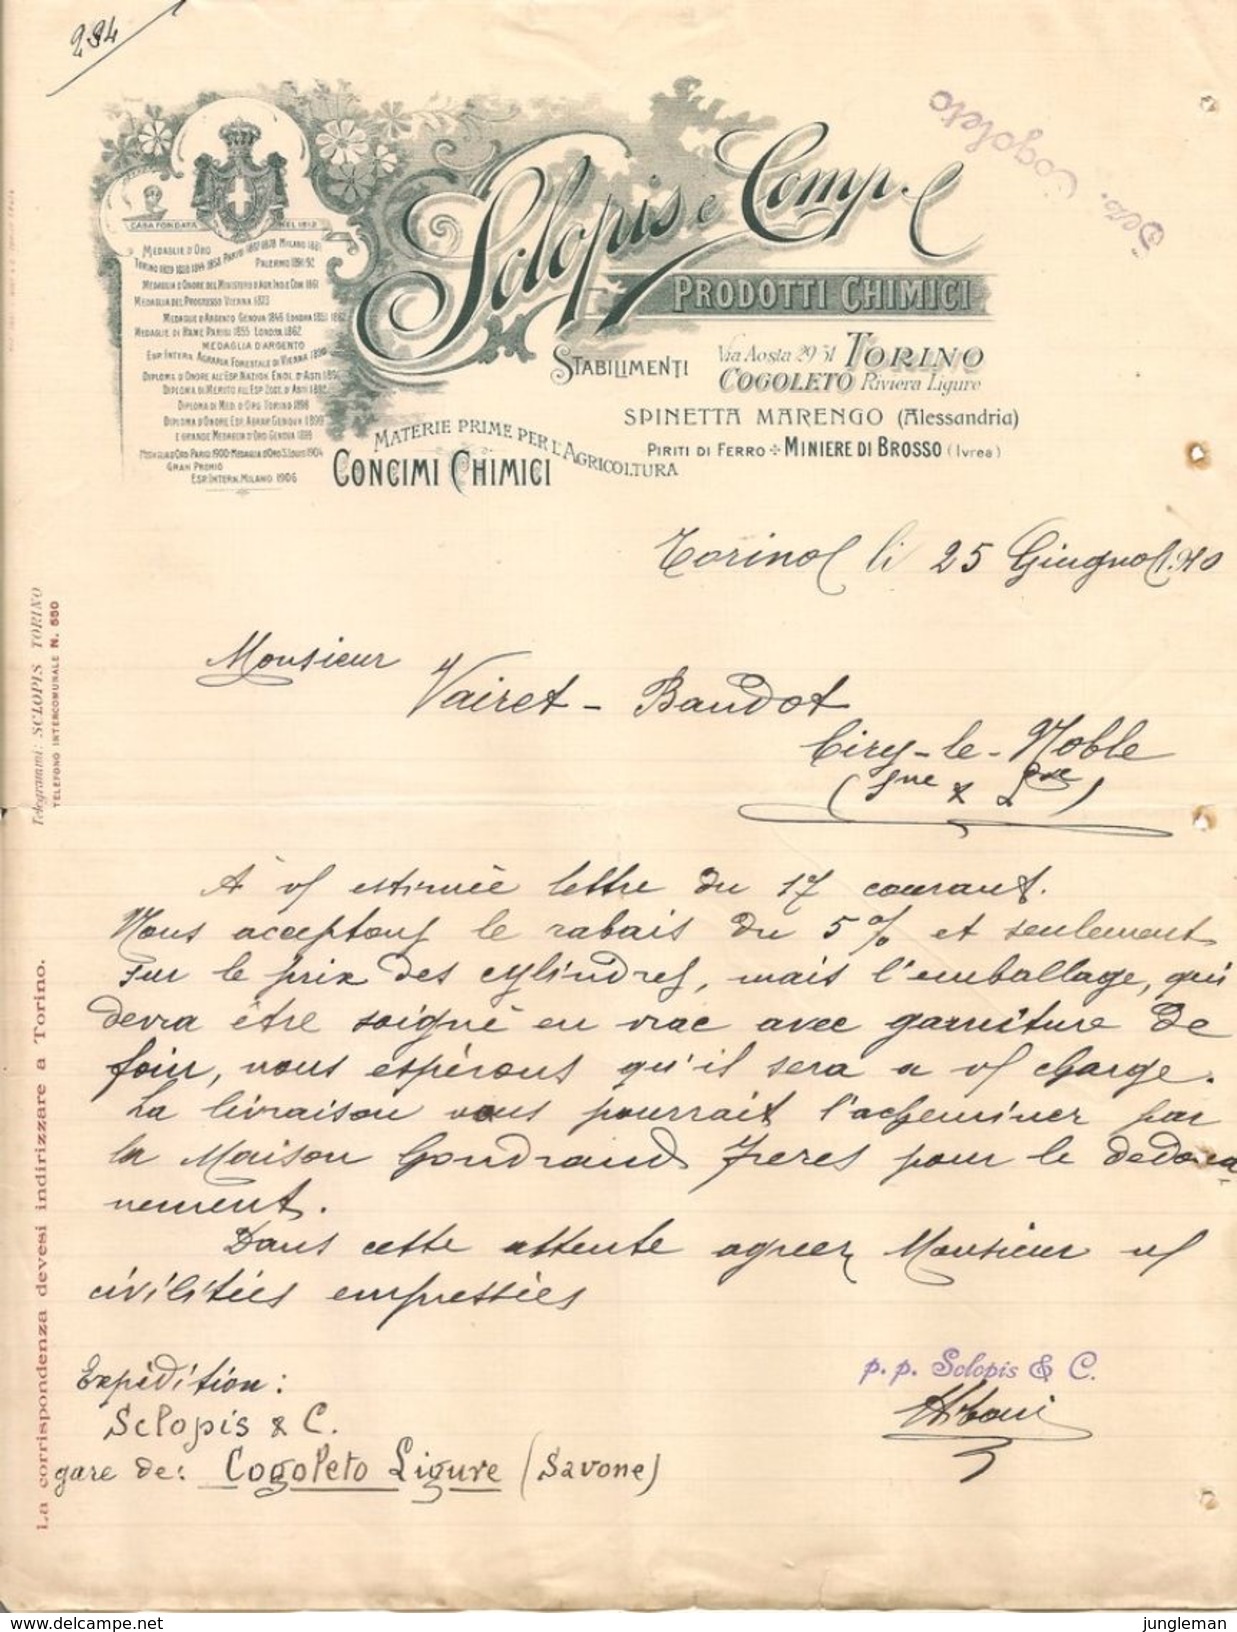 294
Dep. Cogoleto
Sclopis e Comp.
PRODOTTI CHIMICI
CASA FONDATA NEL 1812
MEDAGLIE D'ORO
TORINO 1829 1838 1844 1858 PARIGI 1867 1878 MILANO 1881
PALERMO 1891-92
MEDAGLIA D'ONORE DEL MINISTERO D'AGR. IND. E COM. 1861
MEDAGLIA DEL PROGRESSO VIENNA 1873
MEDAGLIE D'ARGENTO GENOVA 1846 LONDRA 1851 1862
MEDAGLIE DI RAME PARIGI 1855 LONDRA 1862
MEDAGLIA D'ARGENTO
ESP. INTERN. AGRARIA FORESTALE DI VIENNA 1890
DIPLOMA D'ONORE ALL'ESP. NAZION. ENOL. D'ASTI
DIPLOMA DI MERITO ALL'ESP. ZOOT. D'ASTI
DIPLOMA DI MED. D'ORO TORINO 1898
DIPLOMA D'ONORE ESP. AGRAR. GENOVA 1899
E GRANDE MEDAGLIA D'ORO GENOVA 1899
MEDAGLIA D'ORO PARIGI 1900-MEDAGLIA D'ORO S. LOUIS 1904
GRAN PREMIO
ESP. INTERN. MILANO 1906
STABILIMENTI Via Aosta 29 31 TORINO
COGOLETO Riviera Ligure
SPINETTA MARENGO (Alessandria)
PIRITI DI FERRO MINIERE DI BROSSO (Ivrea)
MATERIE PRIME PER L'AGRICOLTURA
CONCIMI CHIMICI
Telegrammi: SCLOPIS TORINO
TELEFONO INTERCOMUNALE N. 550
La corrispondenza devesi indirizzare a Torino.
Torino li 25 Giugno 1910
Monsieur
Vairet - Baudot
Ciry-le-Noble
(Sne & Lre)
À v/ estimée lettre du 17 courant.
Nous acceptons le rabais du 5% et seulement
sur le prix des cylindres, mais l'emballage, qui
devra être soigné en vrac avec garniture de
foin, nous espérons qu'il sera a v/ charge.
La livraison vous pourrait l'acheminer par
la Maison Gondrand Freres pour le dedoua-
nement.
Dans cette attente agreez Monsieur v/
civilitées empressées
p. p. Sclopis & C.
Expédition:
Sclopis & C.
gare de: Cogoleto Ligure (Savone)
jungleman